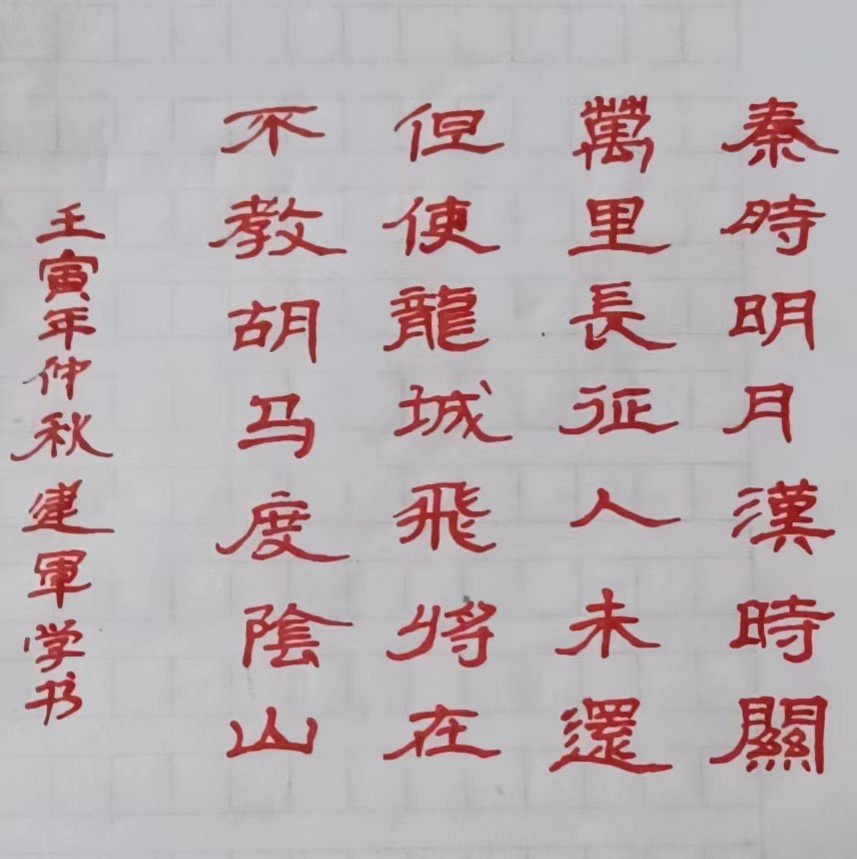 秦時明月漢時關
萬里長征人未還
但使龍城飛將在
不教胡马度陰山
壬寅年仲秋建軍学书